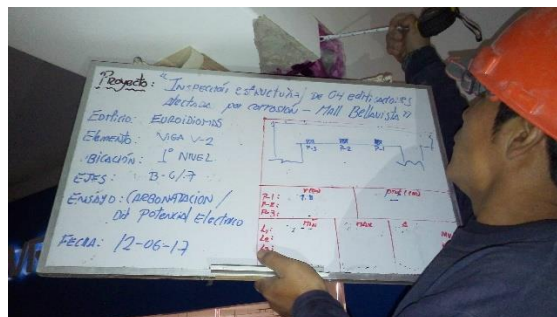 Proyecto: "Inspección estructural de 04 edificaciones
afectadas por corrosión - Mall Bellavista"
Edificio: EUROIDIOMAS
Elemento: VIGA V-2
BICACIÓN: 1° NIVEL
EJES: B-6/7
ENSAYO: CARBONATACION /
Dot Potencial Electrico
FECHA: 12-06-17
P-3 P-2 P-1
P-1:
P-2:
P-3:
MIN MAX
L1:
L2:
L3: